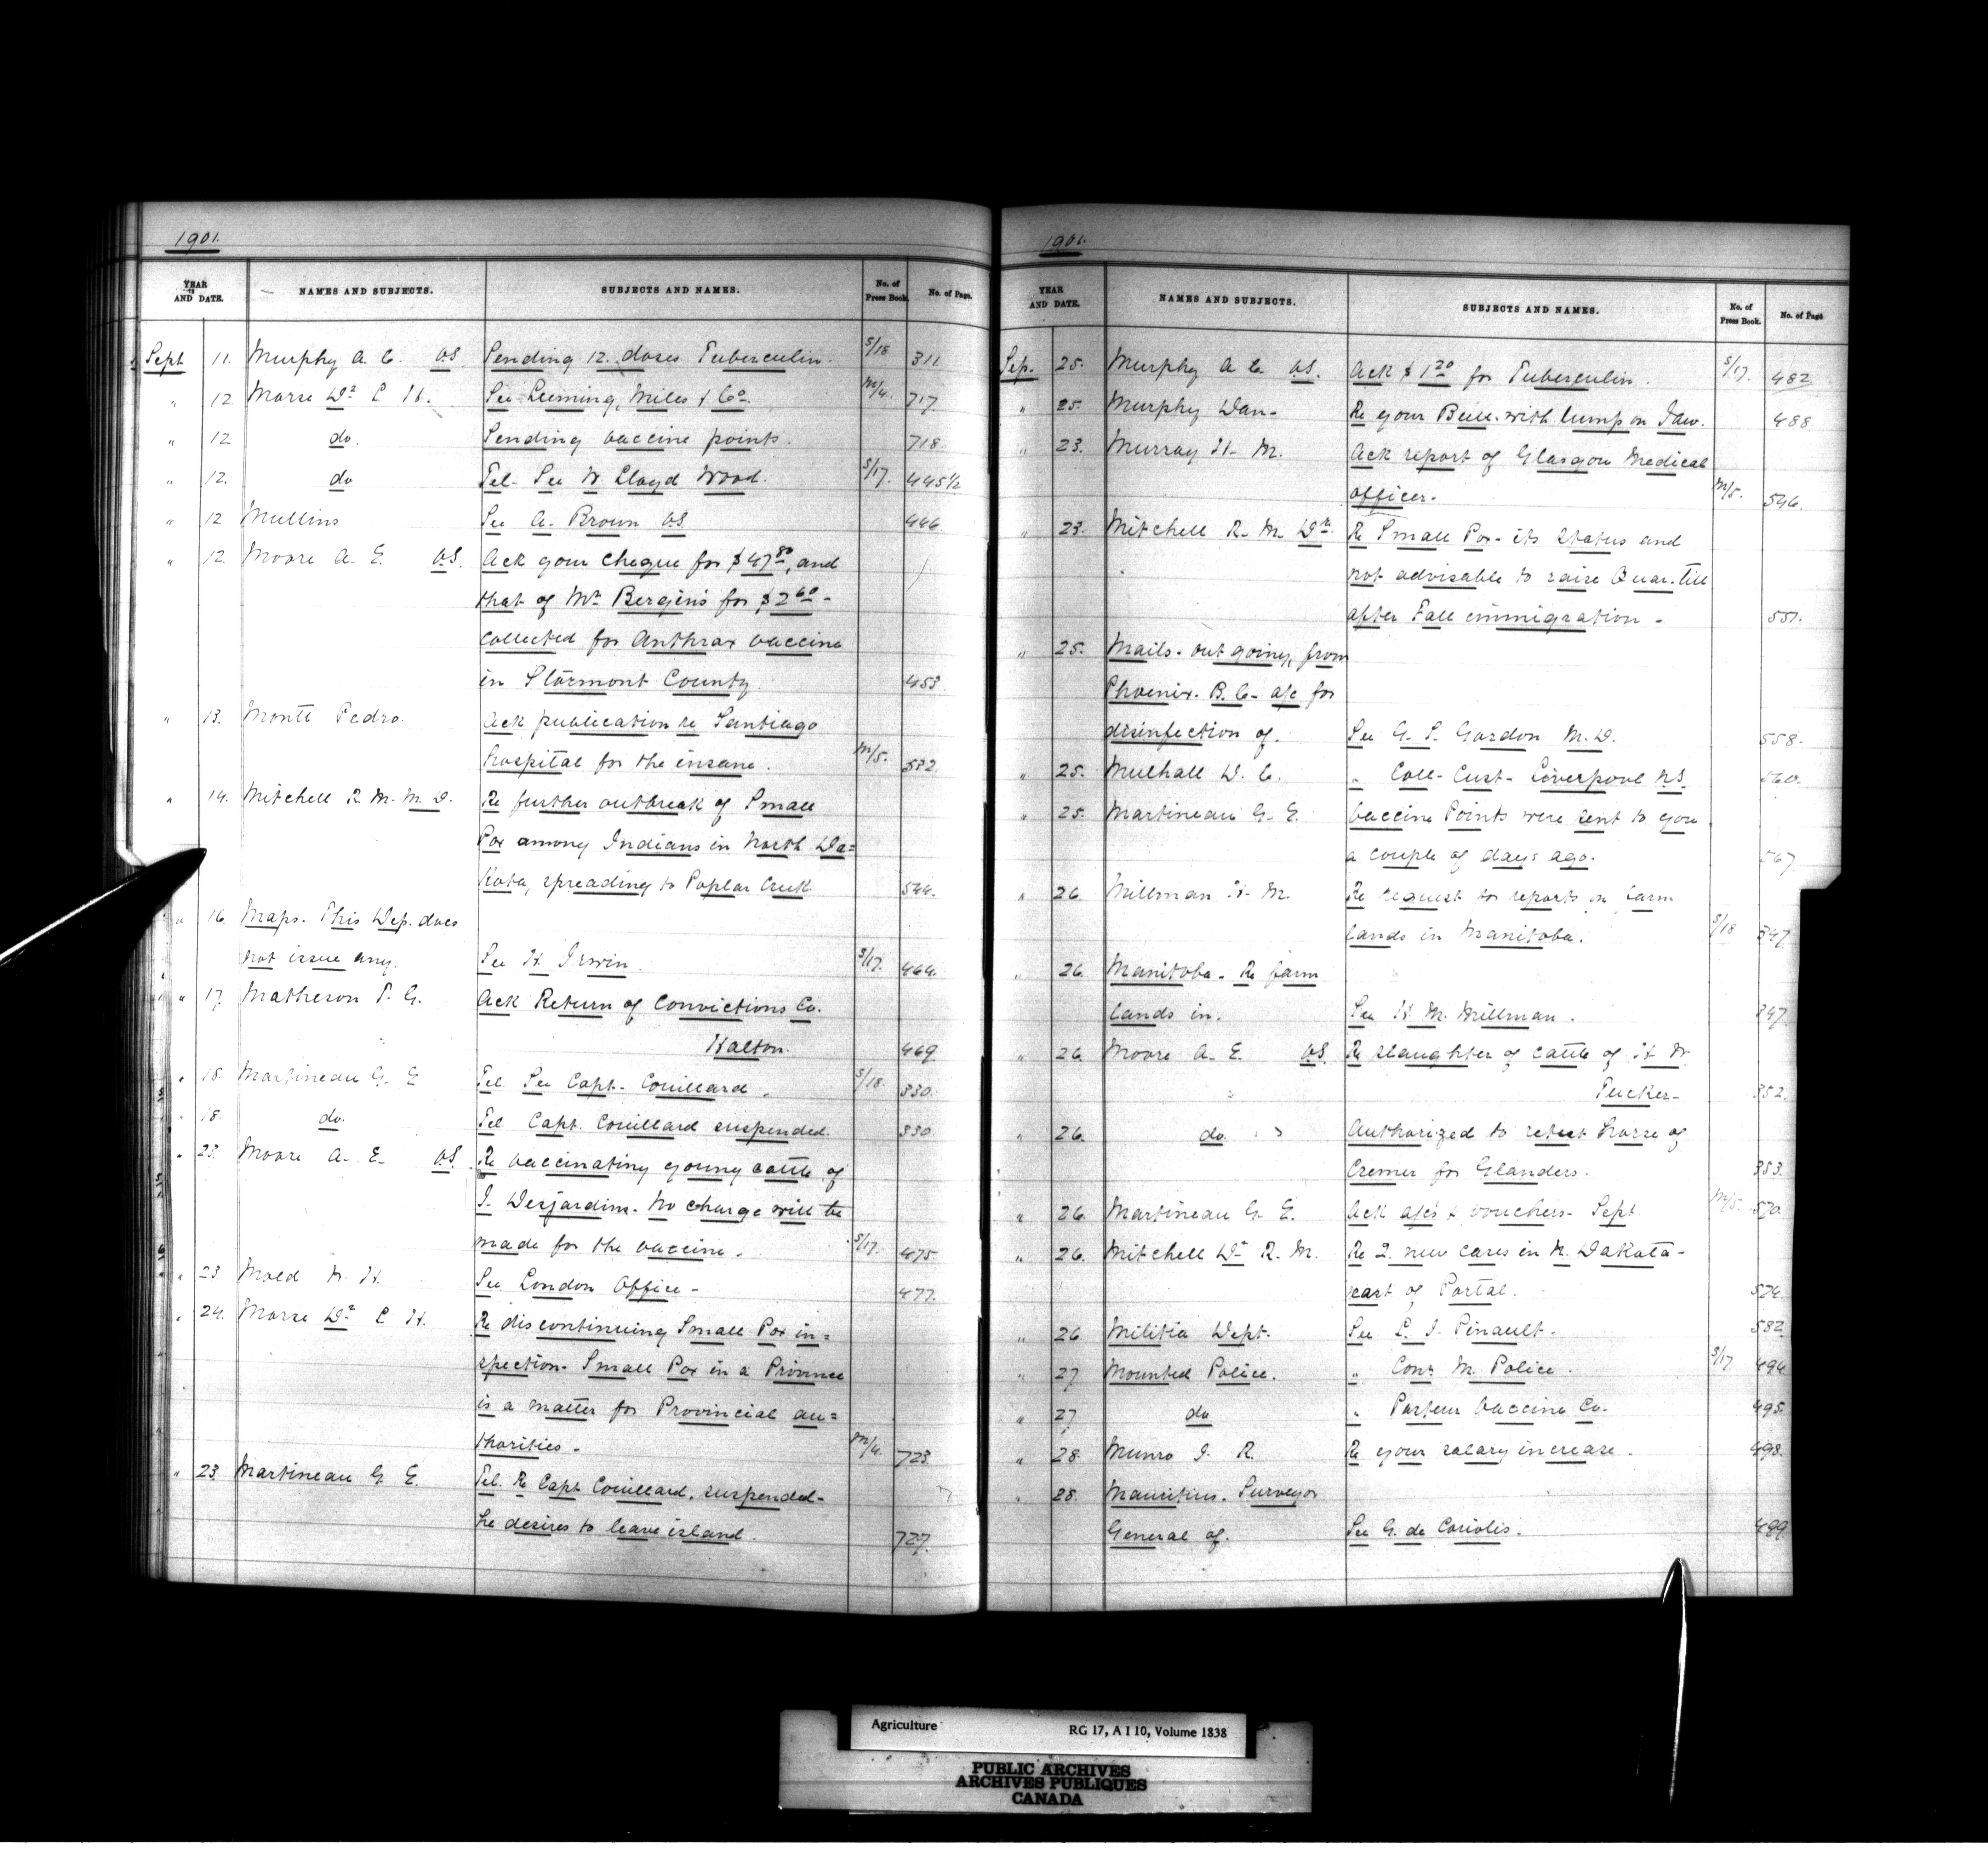 1901.
YEAR AND DATE. NAMES AND SUBJECTS. SUBJECTS AND NAMES. No. of Press Book. No. of Page.
Sept 11. Murphy A. C. VS Sending 12 doses Tuberculin. S/18 311
" 12. Morse Dr C H. See Leeming, Miles & Co. M/4. 717
" 12 do. Sending vaccine points. 718
" 12. do Tel. See W Lloyd Wood. S/17. 445½
" 12 Mullins See A. Brown VS 446
" 12. Moore A. E. VS. Ack your cheque for $47 80, and
that of Mr Bergin's for $2 60 -
collected for Anthrax vaccine
in Stormont County. 453
" 13. Montt Pedro. Ack publication re Santiago
hospital for the insane. M/5. 532
" 14. Mitchell R. M. M. D. Re further outbreak of Small
Pox among Indians in North Da=
kota, spreading to Poplar Creek 544.
" 16. Maps. This Dep. does
not issue any. See H Irwin. S/17. 464.
" 17. Matheson T. G. Ack Return of Convictions Co.
Halton. 469
" 18. Martineau G. E Tel. See Capt. Couillard. S/18. 330.
" 18. do. Tel Capt. Couillard suspended. 330
" 23. Moore A. E. VS. Re vaccinating young cattle of
J. Desjardins. No charge will be
made for the vaccine. S/17. 475.
" 23. Mold W. H. See London Office - 477.
" 24. Morse Dr C H. Re discontinuing Small Pox in=
spection. Small Pox in a Province
is a matter for Provincial au=
thorities - M/4. 723.
" 23. Martineau G E. Tel. Re Capt Couillard, suspended-
he desires to leave island. 727.
1901.
YEAR AND DATE. NAMES AND SUBJECTS. SUBJECTS AND NAMES. No. of Press Book. No. of Page
Sep. 25. Murphy A. C. VS. Ack $1 20 for Tuberculin. S/17. 482
" 25. Murphy Dan- Re your Bull with lump on Jaw. 488.
" 23. Murray H- M. Ack report of Glasgow Medical
officer- M/5. 546.
" 23. Mitchell R. M. Dr. Re Small Pox- its status and
not advisable to raise Quar. till
after Fall immigration - 551.
" 25. Mails - out going, from
Phoenix. B. C- a/c for
disinfection of. See G. S. Gordon M. D. 558.
" 25. Mulhall D. C. " Coll- Cust- Liverpool N.S. 560.
" 25. Martineau G. E. Vaccine Points were sent to you
a couple of days ago. 567
" 26. Millman H- M. Re request for reports on farm
lands in Manitoba. S/18 347
" 26. Manitoba- Re farm
lands in. See H M. Millman. 347
" 26. Moore A. E. VS. Re slaughter of cattle of H W
Tucker- 352.
" 26. do. Authorized to retest horse of
Cremer for Glanders. 353.
" 26. Martineau G. E. Ack a/cs & vouchers- Sept. M/5. 570.
" 26. Mitchell Dr R. M. Re 2. new cases in N. Dakota -
east of Portal. 574.
" 26. Militia Dept. See L. J. Pinault. 582
" 27 Mounted Police. " Comr M. Police. S/17 494
" 27 do " Pasteur Vaccine Co. 495.
" 28. Munro J. R. Re your salary increase. 498.
" 28. Mauritius. Surveyor
General of. See G. de Coriolis. 499.
Agriculture RG 17, A I 10, Volume 1838
PUBLIC ARCHIVES
ARCHIVES PUBLIQUES
CANADA